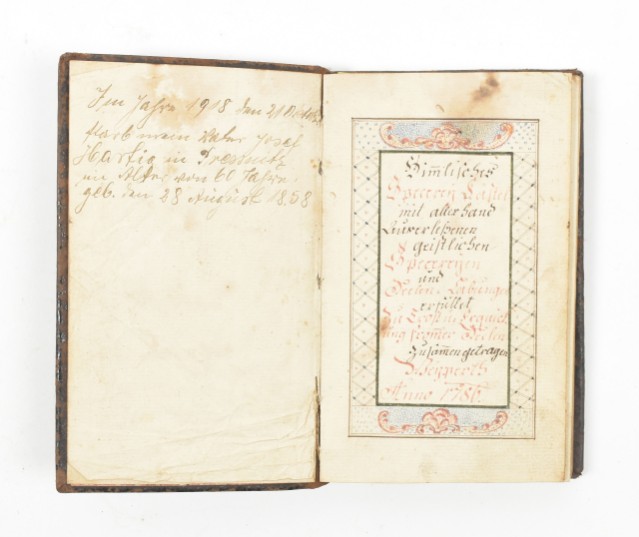 Im Jahre 1918 den 21 Oktob
starb mein Vater Josef
Hartig in Pressnitz
im Alter von 60 Jahre.
geb. den 28 August 1858
Himlisches
Specerey Kastel
mit allerhand
auserleßenen
geistlichen
Specereyen
und
Seelen Labungen
erfüllet
Zu Trost u. Erquick
ung fromer Seelen
zusamen getragen
Anno 1786